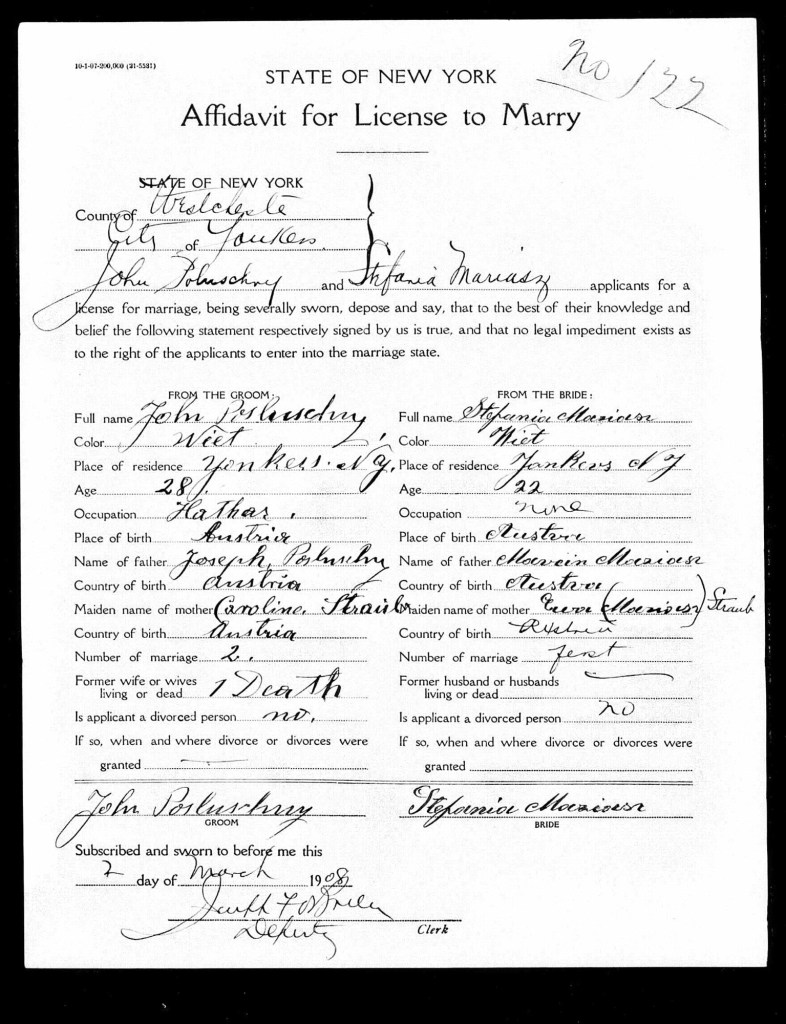 10-1-07-200,000 (21-5581)
No 122
STATE OF NEW YORK
Affidavit for License to Marry
STATE OF NEW YORK
County of Westcheste
City of Yonkers
John Poluschny and Stefania Mariasz applicants for a
license for marriage, being severally sworn, depose and say, that to the best of their knowledge and
belief the following statement respectively signed by us is true, and that no legal impediment exists as
to the right of the applicants to enter into the marriage state.
FROM THE GROOM:
Full name John Posluschny
Color Wiet
Place of residence Yonkers. N Y.
Age 28.
Occupation Hathar.
Place of birth Austria
Name of father Joseph Posluschny
Country of birth Austria
Maiden name of mother Caroline. Straub
Country of birth Austria
Number of marriage 2.
Former wife or wives
living or dead 1 Death
Is applicant a divorced person no.
If so, when and where divorce or divorces were
granted
FROM THE BRIDE:
Full name Stefania Mariasz
Color Wiet
Place of residence Yonkers N Y
Age 22
Occupation none
Place of birth Austra
Name of father Mariasz
Country of birth Austra
Maiden name of mother Ewa (Mariasz) Straub
Country of birth
Number of marriage ferst
Former husband or husbands
living or dead
Is applicant a divorced person no
If so, when and where divorce or divorces were
granted
John Posluschny
GROOM
Stefania Mariasz
BRIDE
Subscribed and sworn to before me this
2 day of March 1908
Joseph F O'Brien
Deputy Clerk